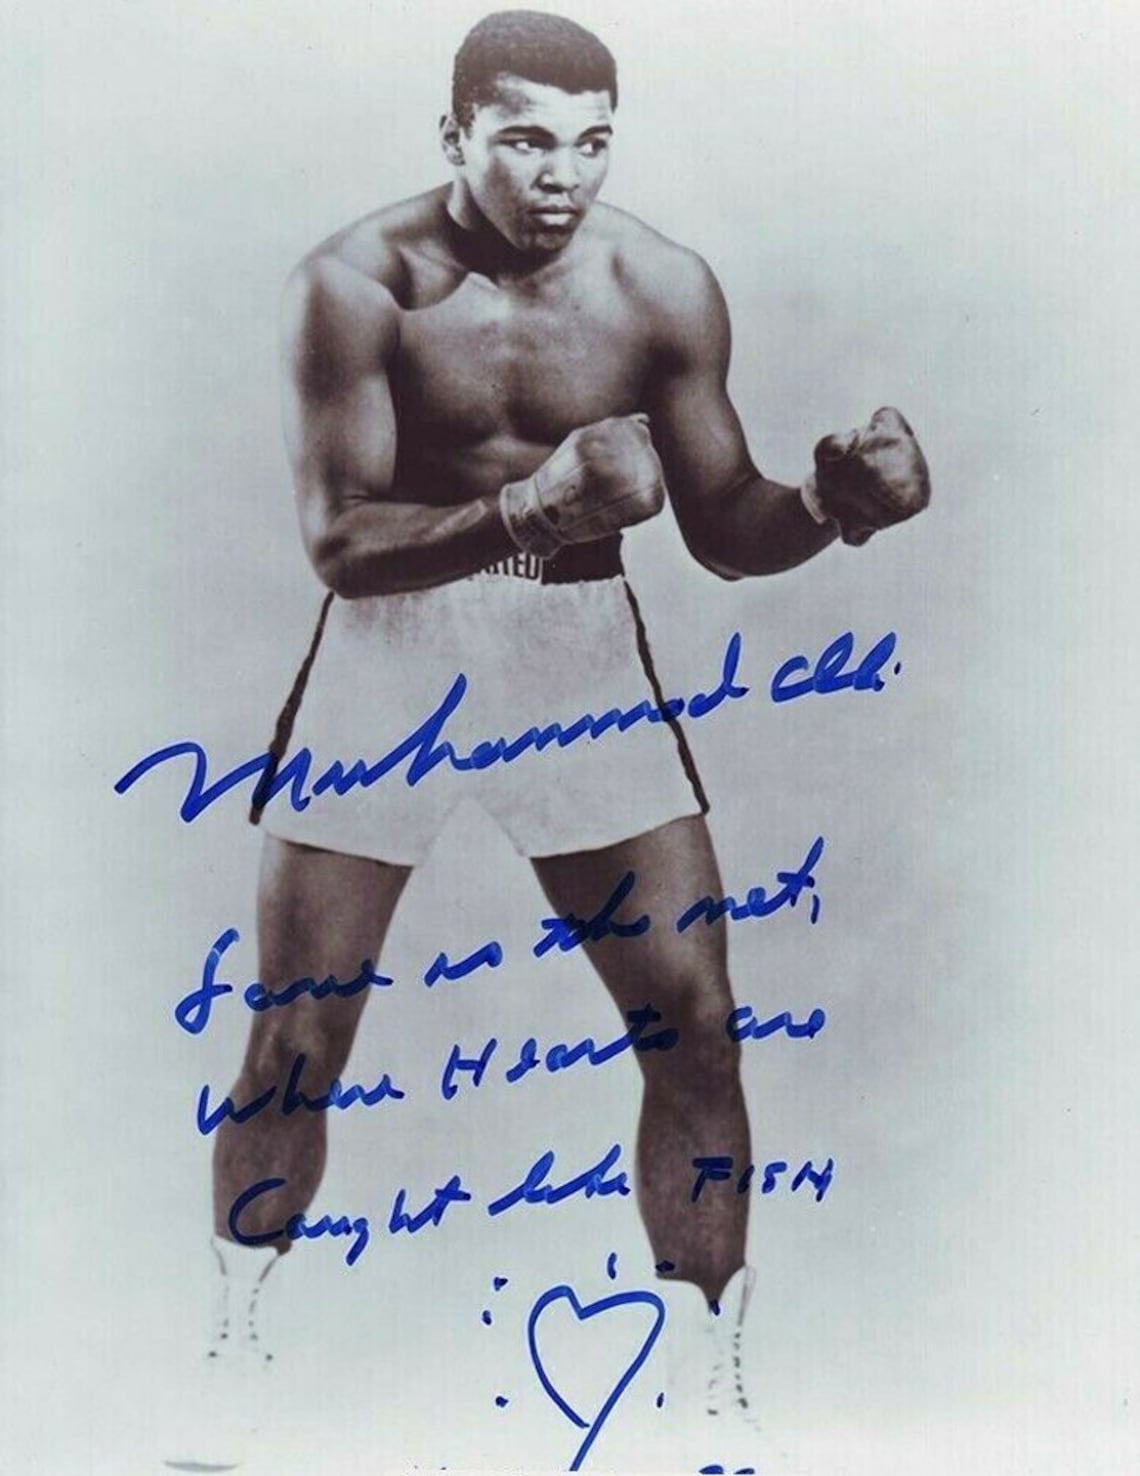 Muhammad Ali
Love is the net,
Where Hearts are
Caught like FISH